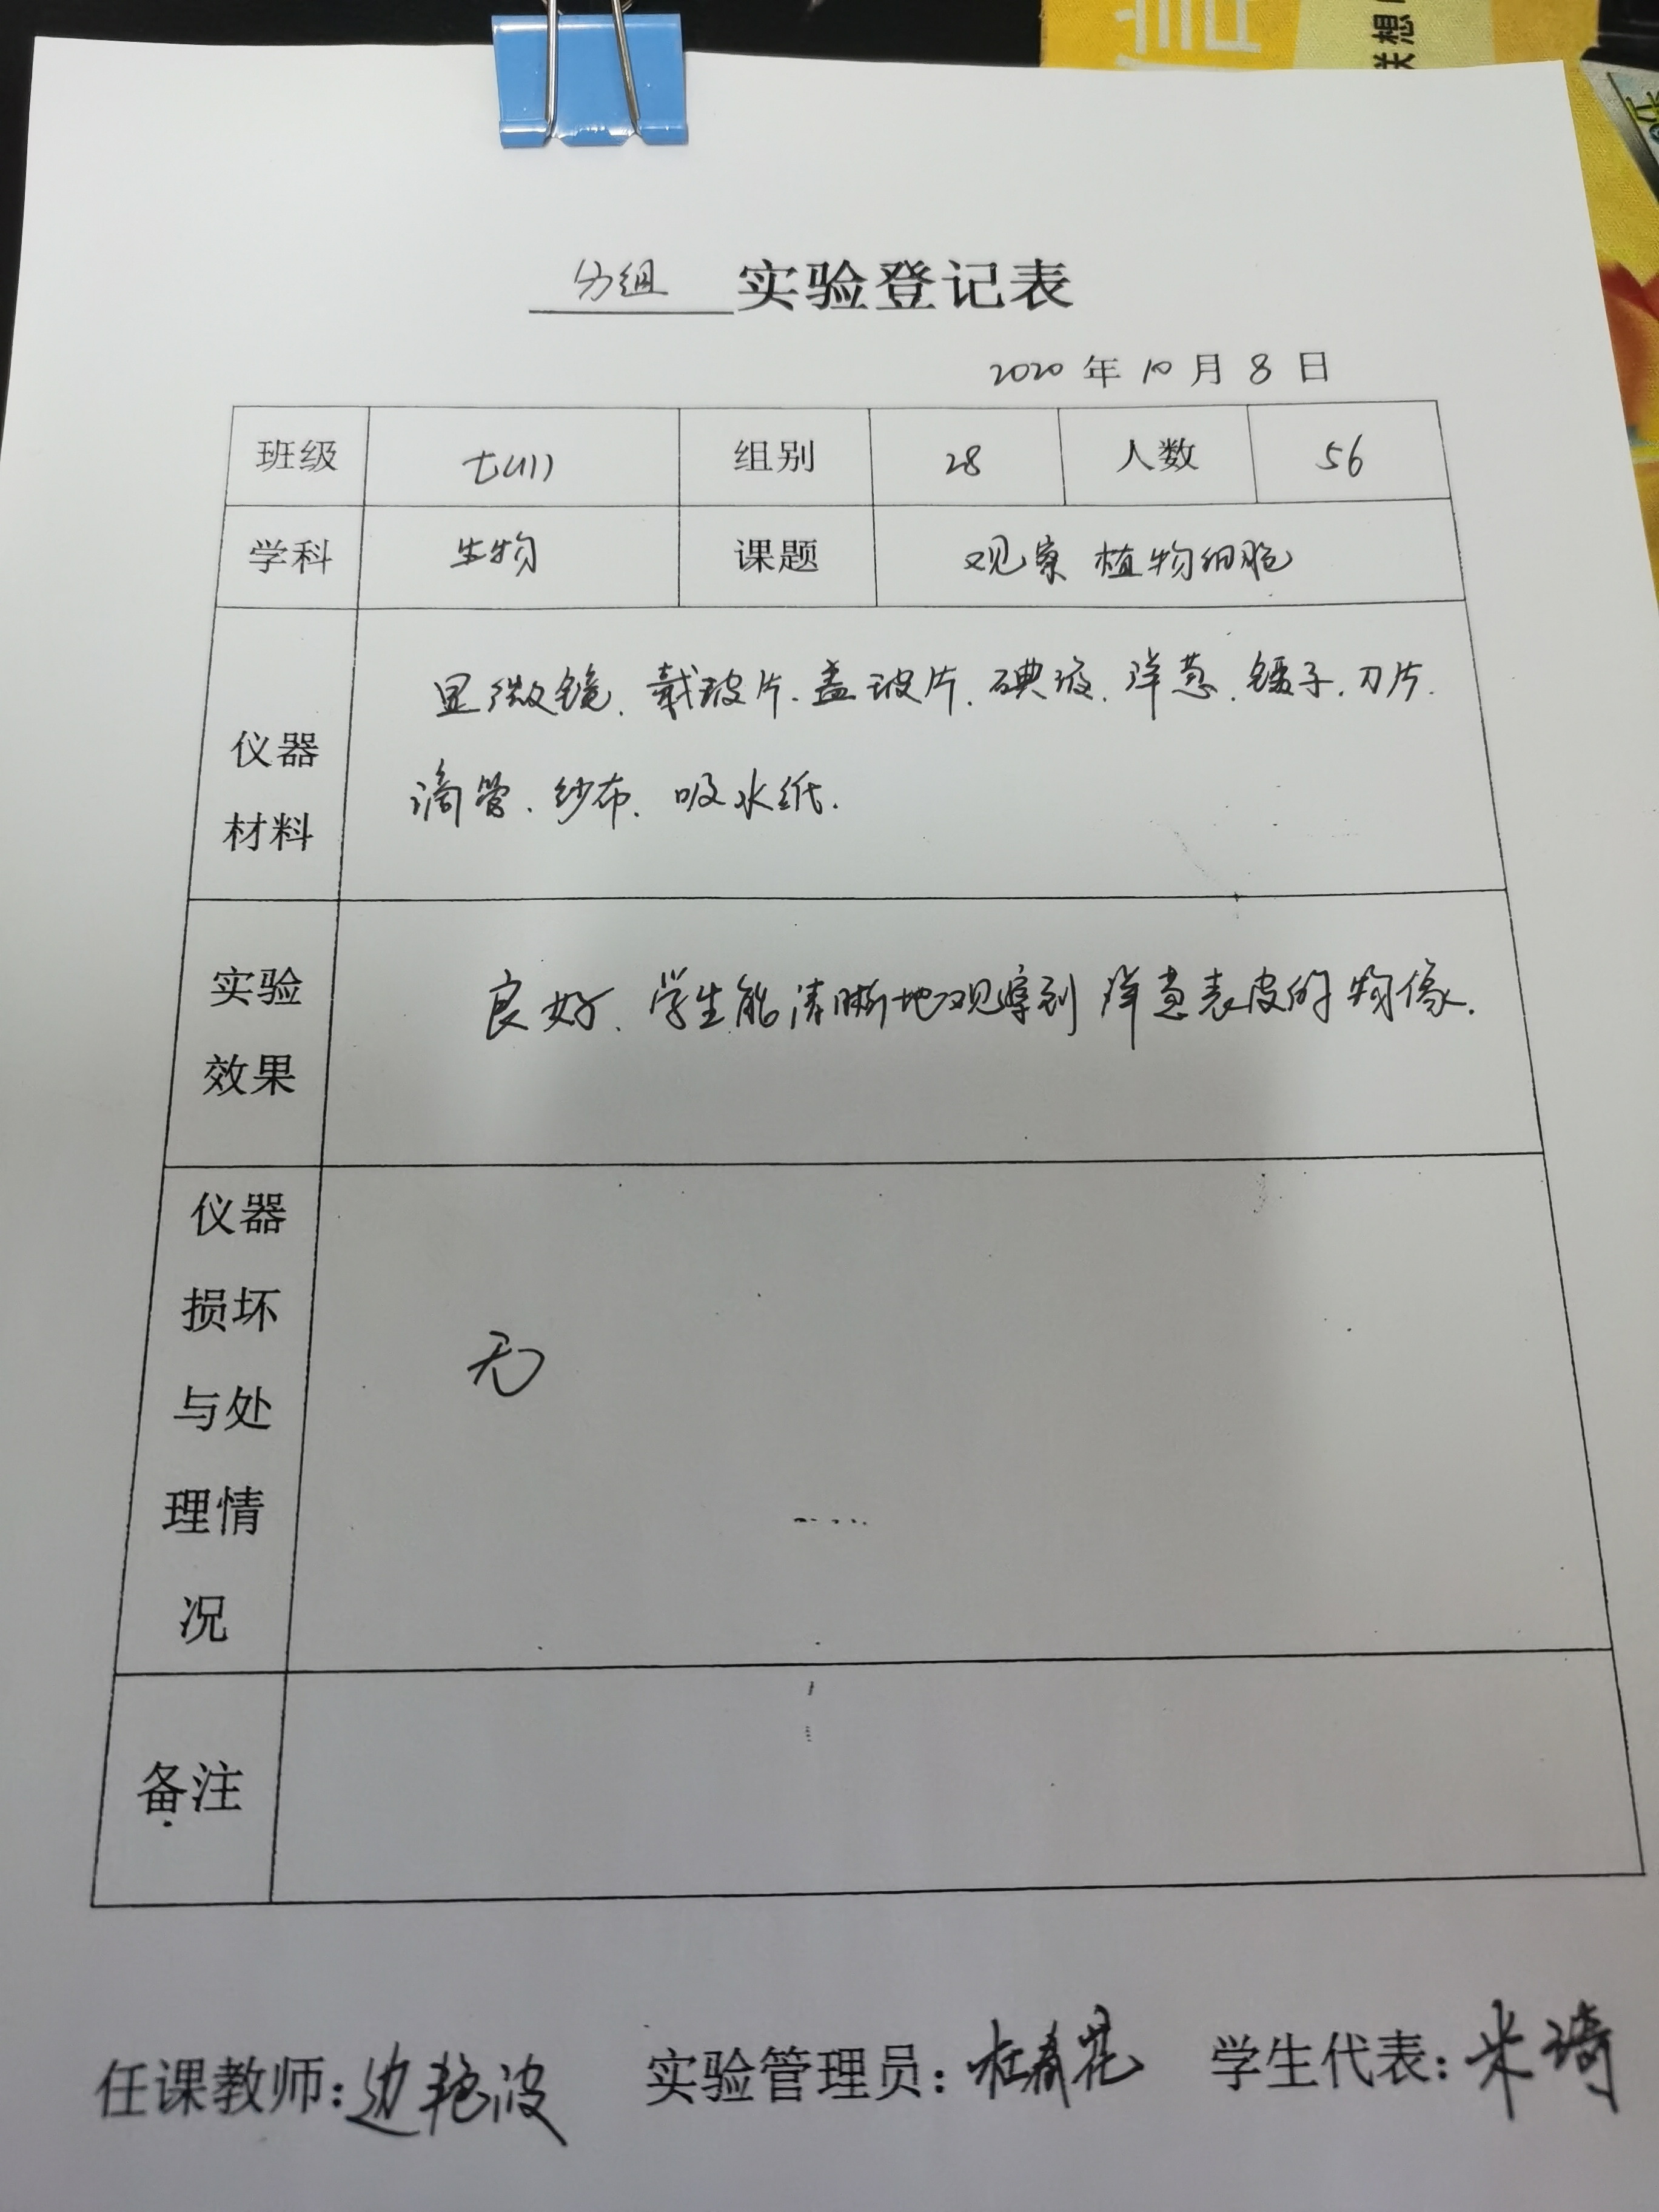 分组 实验登记表
2020 年 10 月 8 日
班级 七(1) 组别 28 人数 56
学科 生物 课题 观察植物细胞
仪器材料 显微镜、载玻片、盖玻片、碘液、洋葱、镊子、刀片、
滴管、纱布、吸水纸.
实验效果 良好、学生能清晰地观察到洋葱表皮的物像.
仪器损坏与处理情况 无
备注
任课教师:边艳波 实验管理员:杜春花 学生代表:米琦
联想